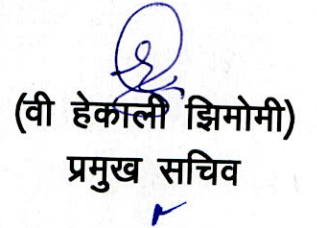 (वी हेकाली झिमोमी)
प्रमुख सचिव